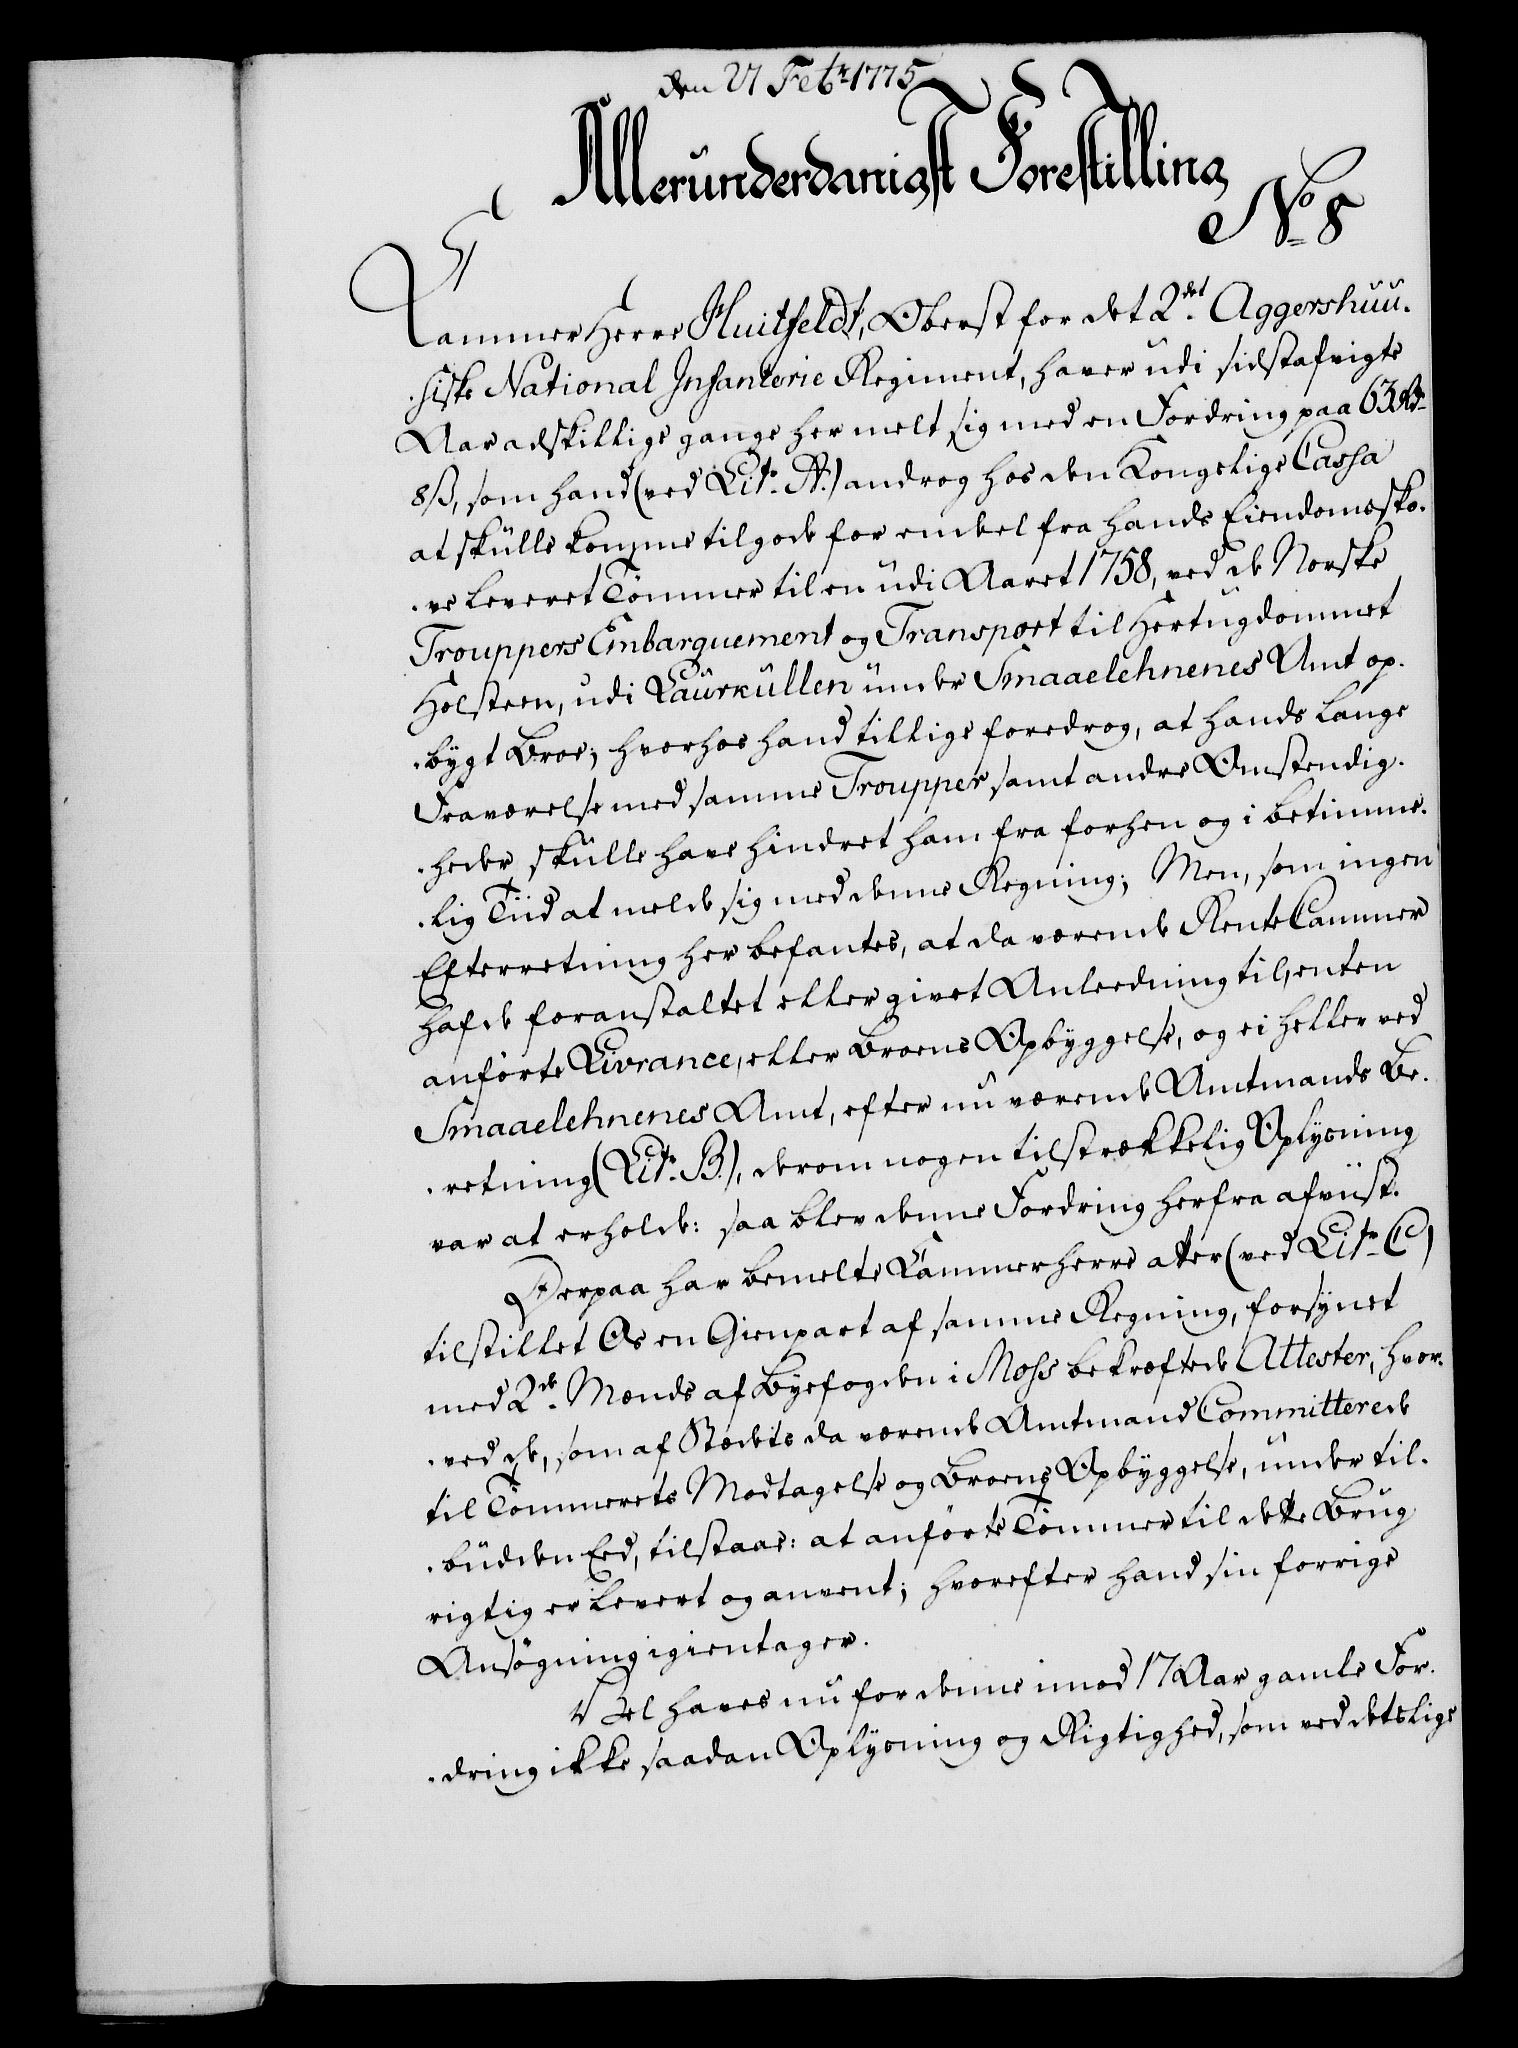 den 27 Febr 1775
Allerunderdanigst Forestilling
No 8
Kammer Herre Huitfeldt, Oberst for det 2det Aggershuu-
-siske National Infanterie Regiment, haver udi sidstafvigte
Aar adskillige gange her melt sig med en Fordring paa 63 Rdr
8 ß, som hand (ved Litr. A.) androg hos den Kongelige Cassa
at skulle komme tilgode for endeel fra hands Eiendomssko-
-ve leveret Tömmer til en udi Aaret 1758, ved de Norske
Trouppers Embarquement og Transport til Hertugdommet
Holsteen, udi Laurkullen under Smaaelehnenes Amt op-
-bygt Broe; hvorhos hand tillige foredrog, at hands lange
Fraværelse med samme Troupper samt andre Omstendig-
-heder skulle have hindret ham fra forhen og i betimme-
-lig Tiid at melde sig med denne Regning; Men, som ingen
Efterretning her befantes, at da værende RenteCammer
hafde foranstaltet eller givet Anleedning til, enten
anförte Livrance, eller Broens Opbyggelse, og ei heller ved
Smaaelehnenes Amt, efter nu værende Amtmands Be-
-retning (Litr. B.), derom nogen tilstrækkelig Oplysning
var at erholde: saa blev denne Fordring herfra afviist.
Derpaa har bemelte Kammerherre atter (ved Litr. C)
tilstillet Os en Gienpart af samme Regning, forsynet
med 2de Mænds af Byefogden i Moss bekræftede Attester, hvor-
-ved de, som af Stedets da værende Amtmand Committerede
til Tömmerets Modtagelse og Broens Opbyggelse, under til-
-buden Eed, tilstaae: at anförte Tömmer til dette Brug
rigtig er levert og anvent; hvorefter hand sin forrige
Ansögning igientager.
Vel haves nu for denne imod 17 Aar gamle For-
-dring ikke saadan Oplysning og Rigtighed, som ved detslige